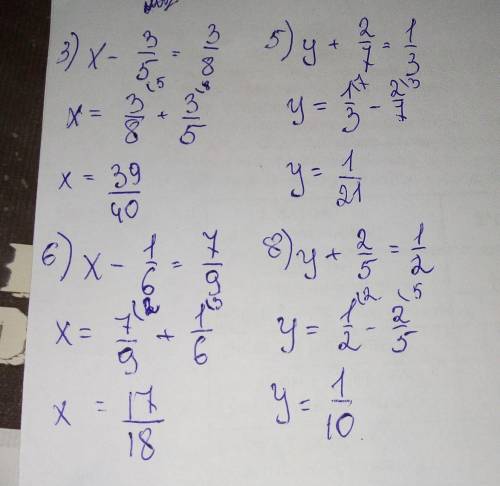 3) x - 3/5 = 3/8
x = 3/8 (5 + 3/5 (8
x = 39/40
5) y + 2/7 = 1/3
y = 1/3 (7 - 2/7 (3
y = 1/21
6) x - 1/6 = 7/9
x = 7/9 (2 + 1/6 (3
x = 17/18
8) y + 2/5 = 1/2
y = 1/2 (2 - 2/5 (5
y = 1/10